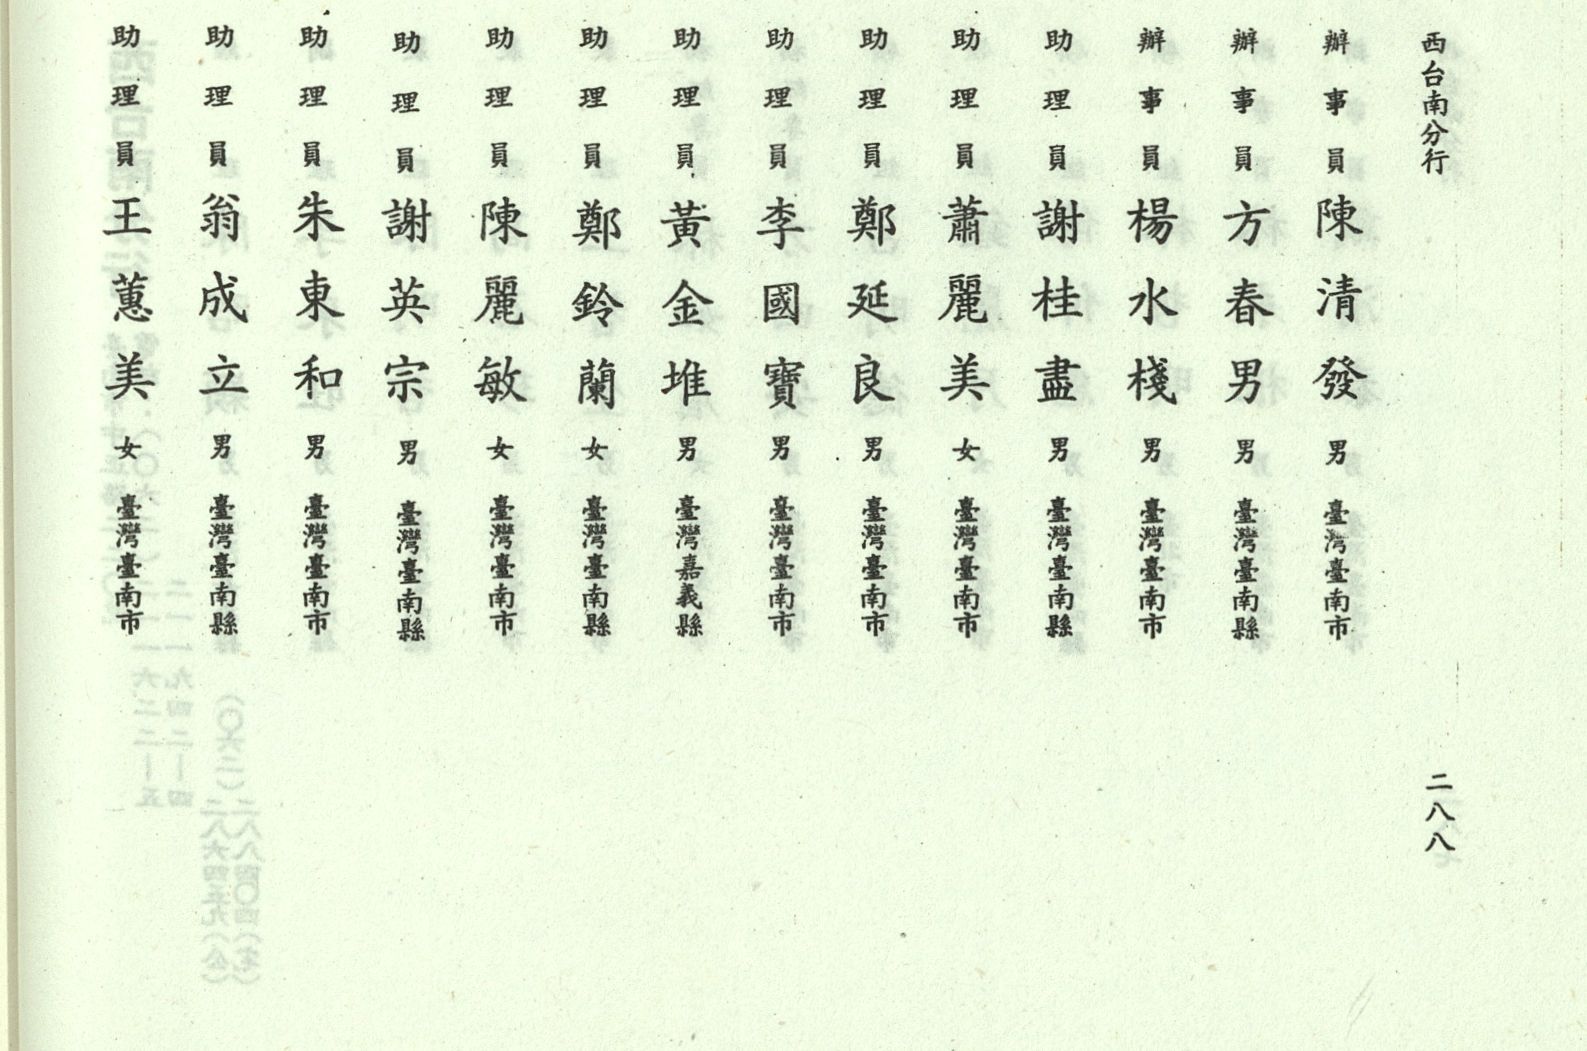 西台南分行
辦事員陳清發男臺灣臺南市
辦事員方春男男臺灣臺南縣
辦事員楊水棧男臺灣臺南市
助理員謝桂盡男臺灣臺南縣
助理員蕭麗美女臺灣臺南市
助理員鄭延良男臺灣臺南市
助理員李國寶男臺灣臺南市
助理員黃金堆男臺灣嘉義縣
助理員鄭鈴蘭女臺灣臺南縣
助理員陳麗敏女臺灣臺南市
助理員謝英宗男臺灣臺南縣
助理員朱東和男臺灣臺南市
助理員翁成立男臺灣臺南縣
助理員王蕙美女臺灣臺南市
二八八